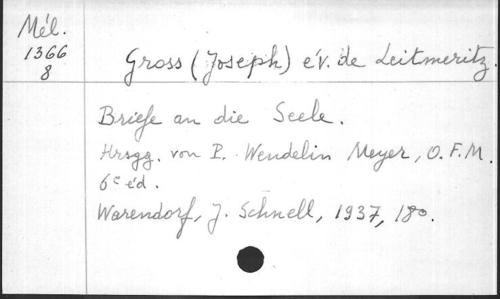 Mél.
1366
8
Gross (Joseph) év. de Leitmeritz.
Briefe an die Seele.
Hrsgg. von P. Wendelin Meyer, O.F.M.
6e éd.
Warendorf, J. Schnell, 1937, 18o.